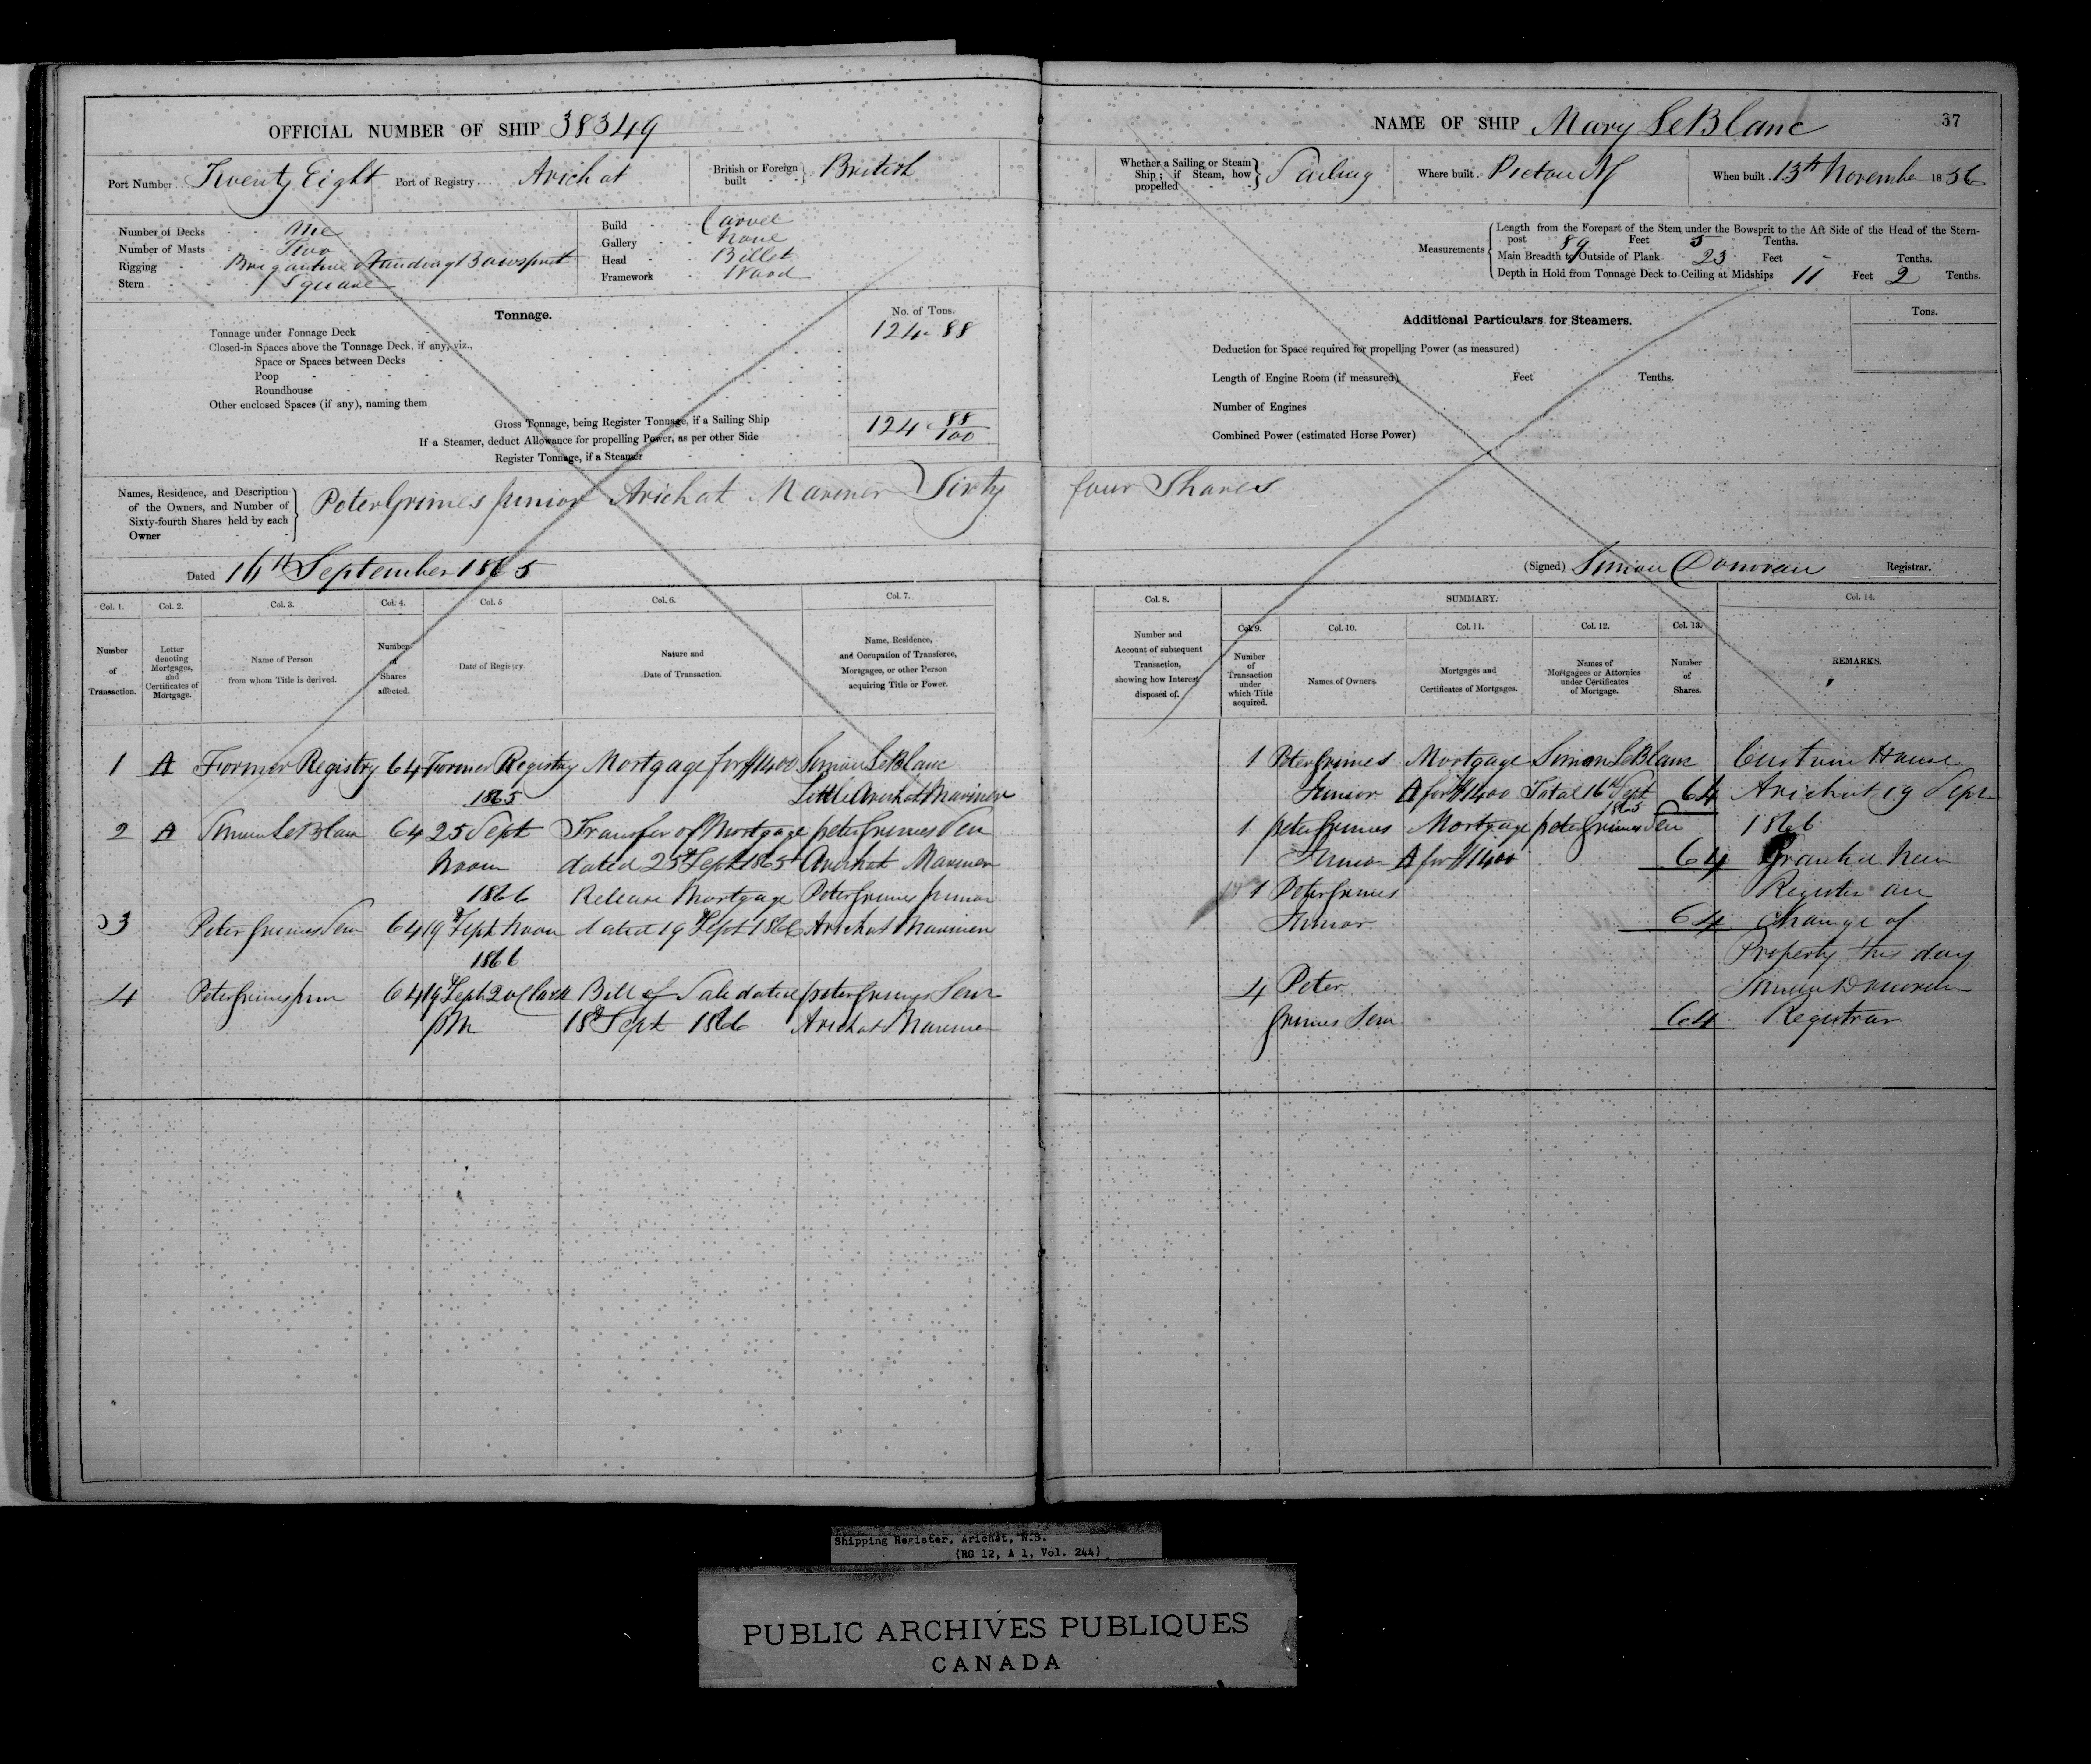 OFFICIAL NUMBER OF SHIP 38349
Port Number Twenty Eight Port of Registry Arichat British or Foreign built British
Number of Decks One
Number of Masts Two
Rigging Brigantine Standing Bowsprit
Stern Square
Build Carvel
Gallery None
Head Billet
Framework Wood
Tonnage.
No. of Tons.
Tonnage under Tonnage Deck 124.88
Closed-in Spaces above the Tonnage Deck, if any, viz.,
Space or Spaces between Decks
Poop
Roundhouse
Other enclosed Spaces (if any), naming them
Gross Tonnage, being Register Tonnage, if a Sailing Ship 124 88/100
If a Steamer, deduct Allowance for propelling Power, as per other Side
Register Tonnage, if a Steamer
Names, Residence, and Description
of the Owners, and Number of
Sixty-fourth Shares held by each
Owner
Peter Grimes Junior Arichat Mariner Sixty
Dated 16th September 1865
Col. 1. Col. 2. Col. 3. Col. 4. Col. 5 Col. 6. Col. 7.
Number of Transaction.
Letter denoting Mortgages, and Certificates of Mortgage.
Name of Person from whom Title is derived.
Number of Shares affected.
Date of Registry
Nature and Date of Transaction.
Name, Residence, and Occupation of Transferee, Mortgagee, or other Person acquiring Title or Power.
1 A Former Registry 64 Former Registry Mortgage for $1400 Simon LeBlanc
1865 Little Arichat Mariner
2 A Simon LeBlanc 64 25 Sept Transfer of Mortgage Peter Grimes Sen
Noon dated 25th Sept 1865 Arichat Mariner
1866 Release Mortgage Peter Grimes Junior
3 Peter Grimes Senr 64 19th Sept Noon dated 19th Sept 1866 Arichat Mariner
1866
4 Peter Grimes Junr 64 19th Sept 2 oClock Bill of Sale dated Peter Grimes Senr
PM 18th Sept 1866 Arichat Mariner
NAME OF SHIP Mary LeBlanc
37
Whether a Sailing or Steam Ship; if Steam, how propelled Sailing Where built Pictou NS When built 13th November 1856
Measurements
Length from the Forepart of the Stem under the Bowsprit to the Aft Side of the Head of the Stern-
post 89 Feet 5 Tenths.
Main Breadth to Outside of Plank 23 Feet - Tenths.
Depth in Hold from Tonnage Deck to Ceiling at Midships 11 Feet 2 Tenths.
Additional Particulars for Steamers.
Tons.
Deduction for Space required for propelling Power (as measured)
Length of Engine Room (if measured) Feet Tenths.
Number of Engines
Combined Power (estimated Horse Power)
four Shares
(Signed) Simon Donovan Registrar.
Col. 8. SUMMARY. Col. 14.
Col. 9. Col. 10. Col. 11. Col. 12. Col. 13.
Number and Account of subsequent Transaction, showing how Interest disposed of.
Number of Transaction under which Title acquired.
Names of Owners.
Mortgages and Certificates of Mortgages.
Names of Mortgagees or Attornies under Certificates of Mortgage.
Number of Shares.
REMARKS.
1 Peter Grimes Mortgage Simon LeBlanc Custom House
Junior A for $1400 Total 16th Sept 1865 64 Arichat 19 Sept
1 Peter Grimes Mortgage Peter Grimes Sen 1866
Junior A for $1400 64 Granted New
1 Peter Grimes Register on
Junior 64 Change of
Property this day
4 Peter Simon Donovan
Grimes Senr 64 Registrar
Shipping Register, Arichat, N.S.
(RG 12, A 1, Vol. 244)
PUBLIC ARCHIVES PUBLIQUES
CANADA